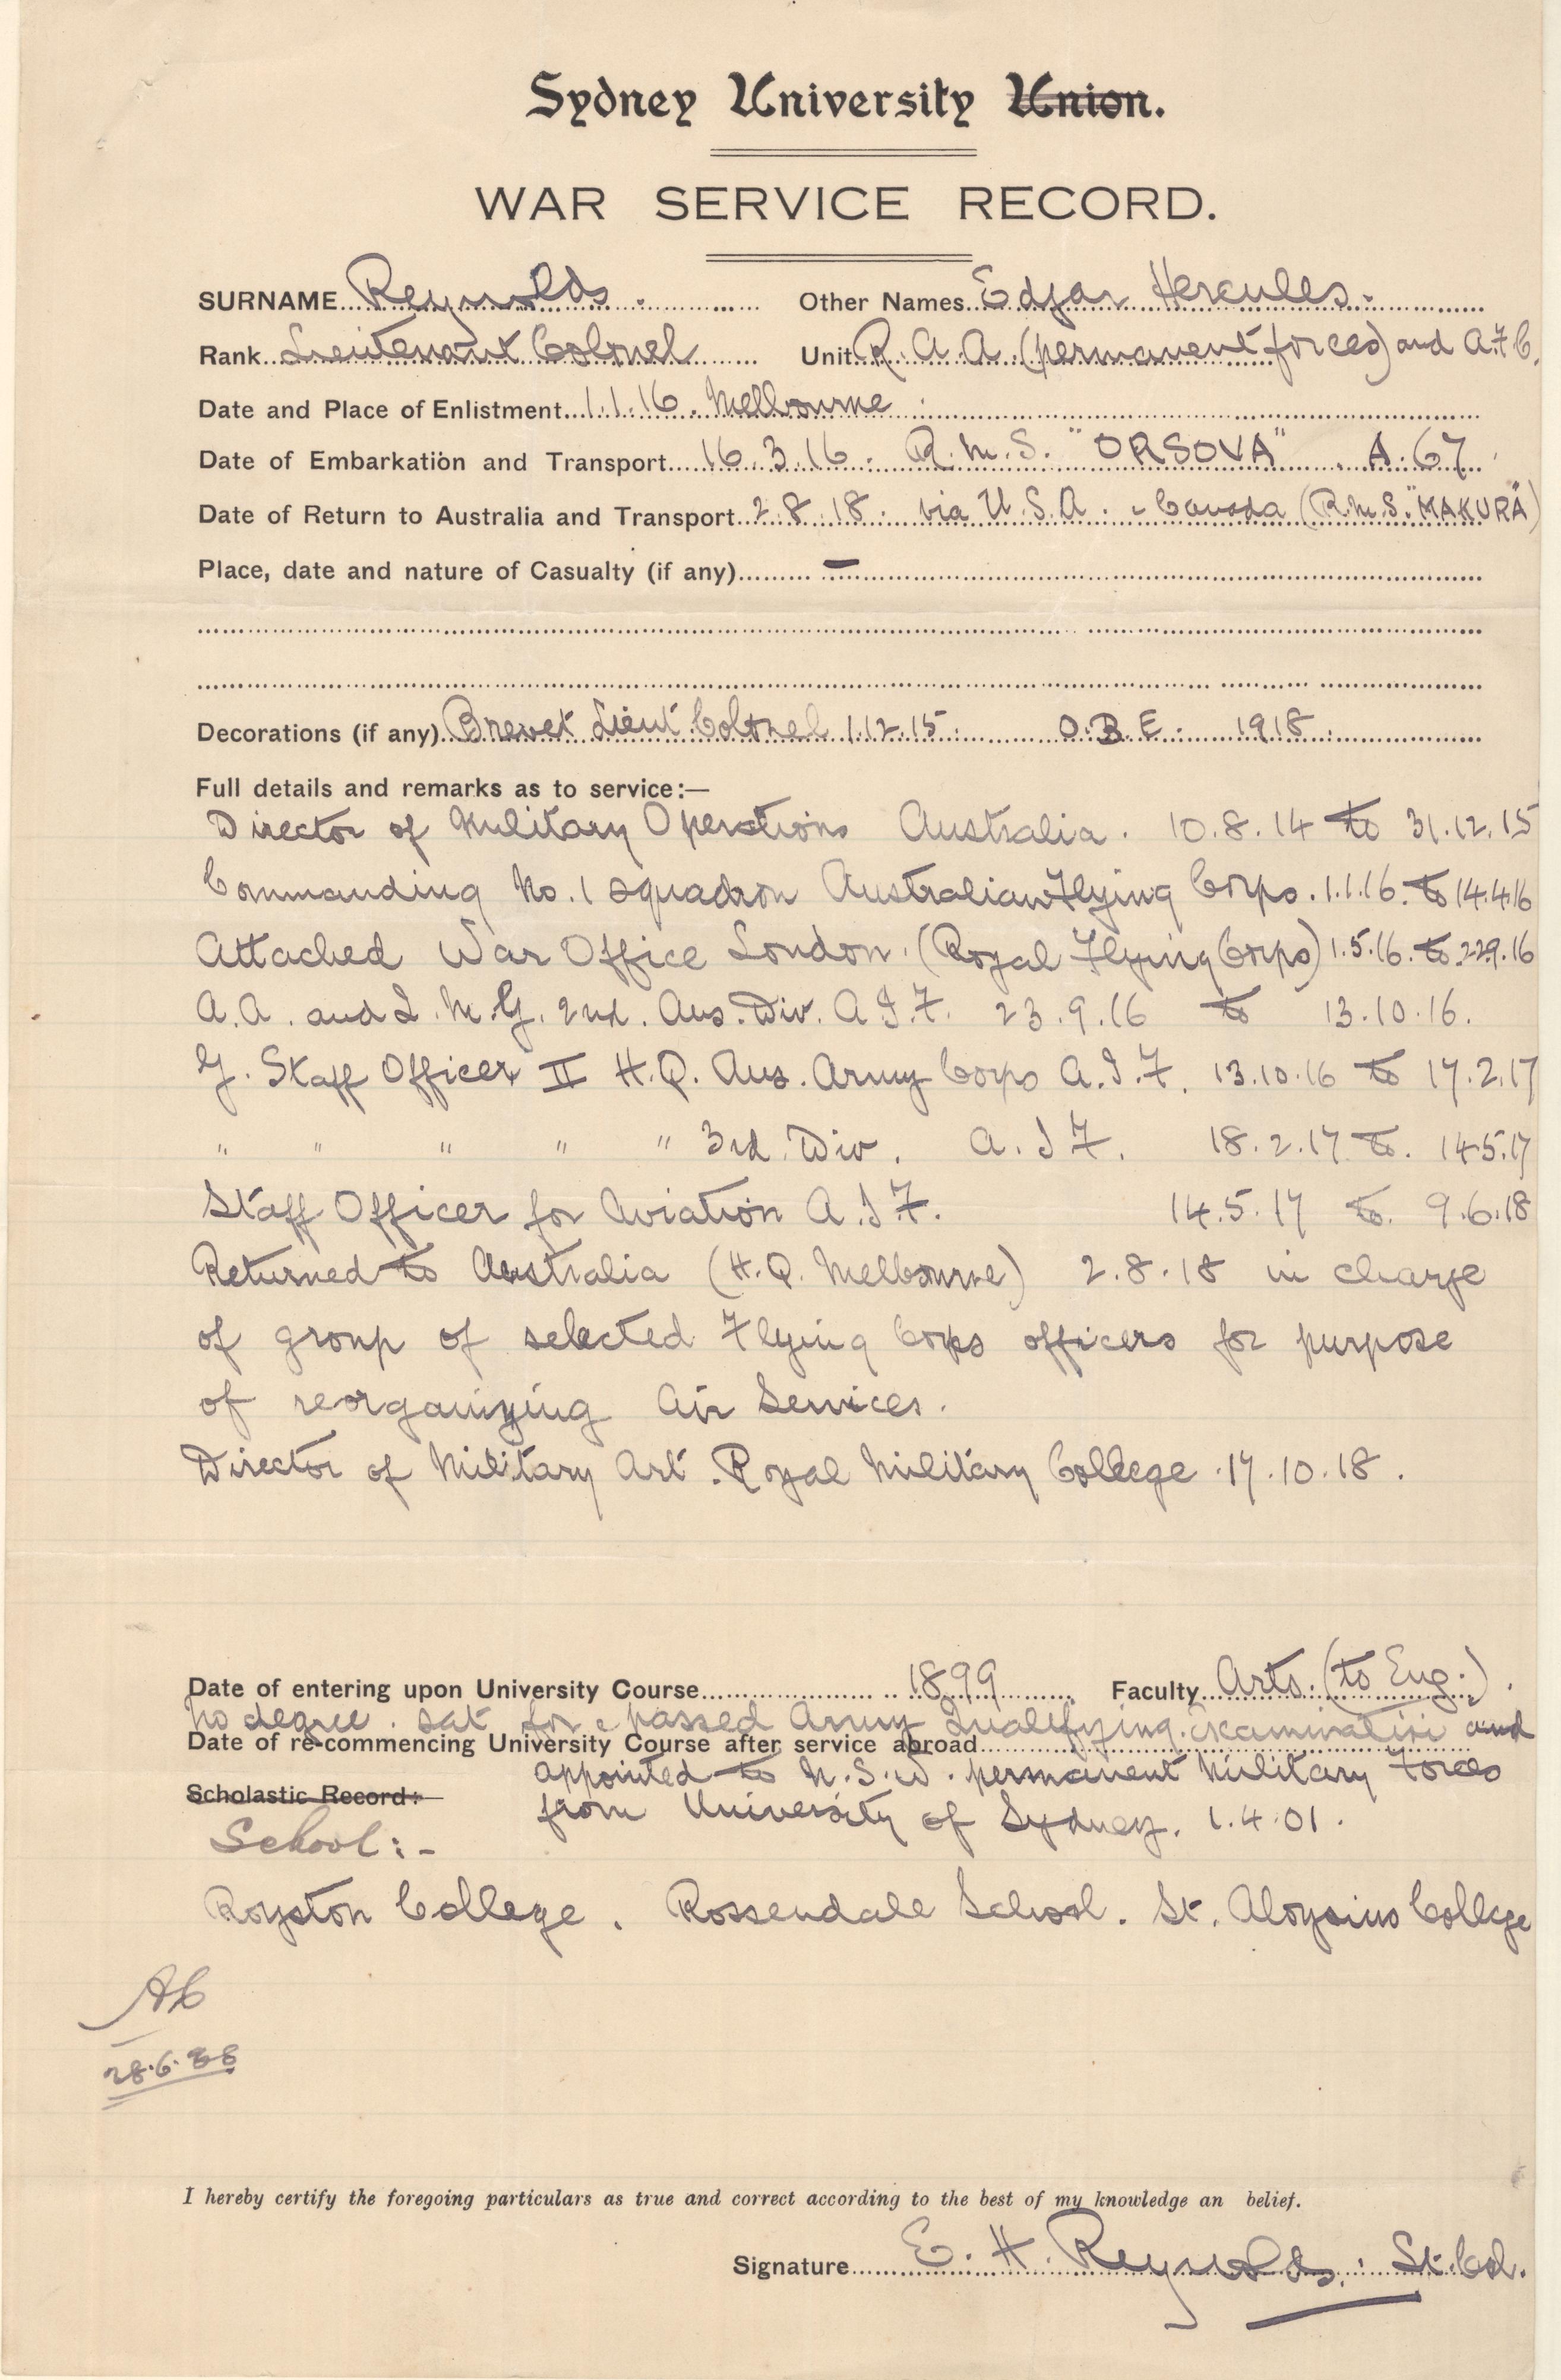 Sydney University Union.
WAR SERVICE RECORD.
SURNAME Reynolds. Other Names Edgar Hercules.
Rank Lieutenant Colonel Unit R.A.A. (permanent forces) and A.F.C.
Date and Place of Enlistment 1.1.16. Melbourne
Date of Embarkation and Transport 16.3.16. R.M.S. "ORSOVA" A.67
Date of Return to Australia and Transport 2.8.18. via U.S.A. - Canada (R.M.S. "MAKURA")
Place, date and nature of Casualty (if any) —
Decorations (if any) Brevet Lieut Colonel 1.12.15. O.B.E. 1918.
Full details and remarks as to service:—
Director of Military Operations Australia. 10.8.14 to 31.12.15
Commanding No. 1 Squadron Australian Flying Corps. 1.1.16. to 14.4.16
Attached War Office London. (Royal Flying Corps) 1.5.16. to 22.9.16
A.A. and Q.M.G. 2nd. Aus. Div. A.I.F. 23.9.16 to 13.10.16.
G. Staff Officer II H.Q. Aus. Army Corps A.I.F. 13.10.16 to 17.2.17
" " " " " 3rd. Div. A.I.F. 18.2.17 to. 14.5.17
Staff Officer for Aviation A.I.F. 14.5.17 to. 9.6.18
Returned to Australia (H.Q. Melbourne) 2.8.18 in charge
of group of selected Flying Corps officers for purpose
of reorganizing Air Services.
Director of Military Art. Royal Military College .17.10.18.
Date of entering upon University Course 1899 Faculty Arts. (to Eng.).
No degree. Sat for & passed Army Qualifying Examination and
Date of re-commencing University Course after service abroad
appointed to N.S.W. permanent Military Forces
Scholastic Record:-
from University of Sydney. 1.4.01.
School:-
Royston College. Rossendale School. St. Aloysius College
28.6.38
I hereby certify the foregoing particulars as true and correct according to the best of my knowledge an belief.
Signature E. H. Reynolds. Lt. Col.